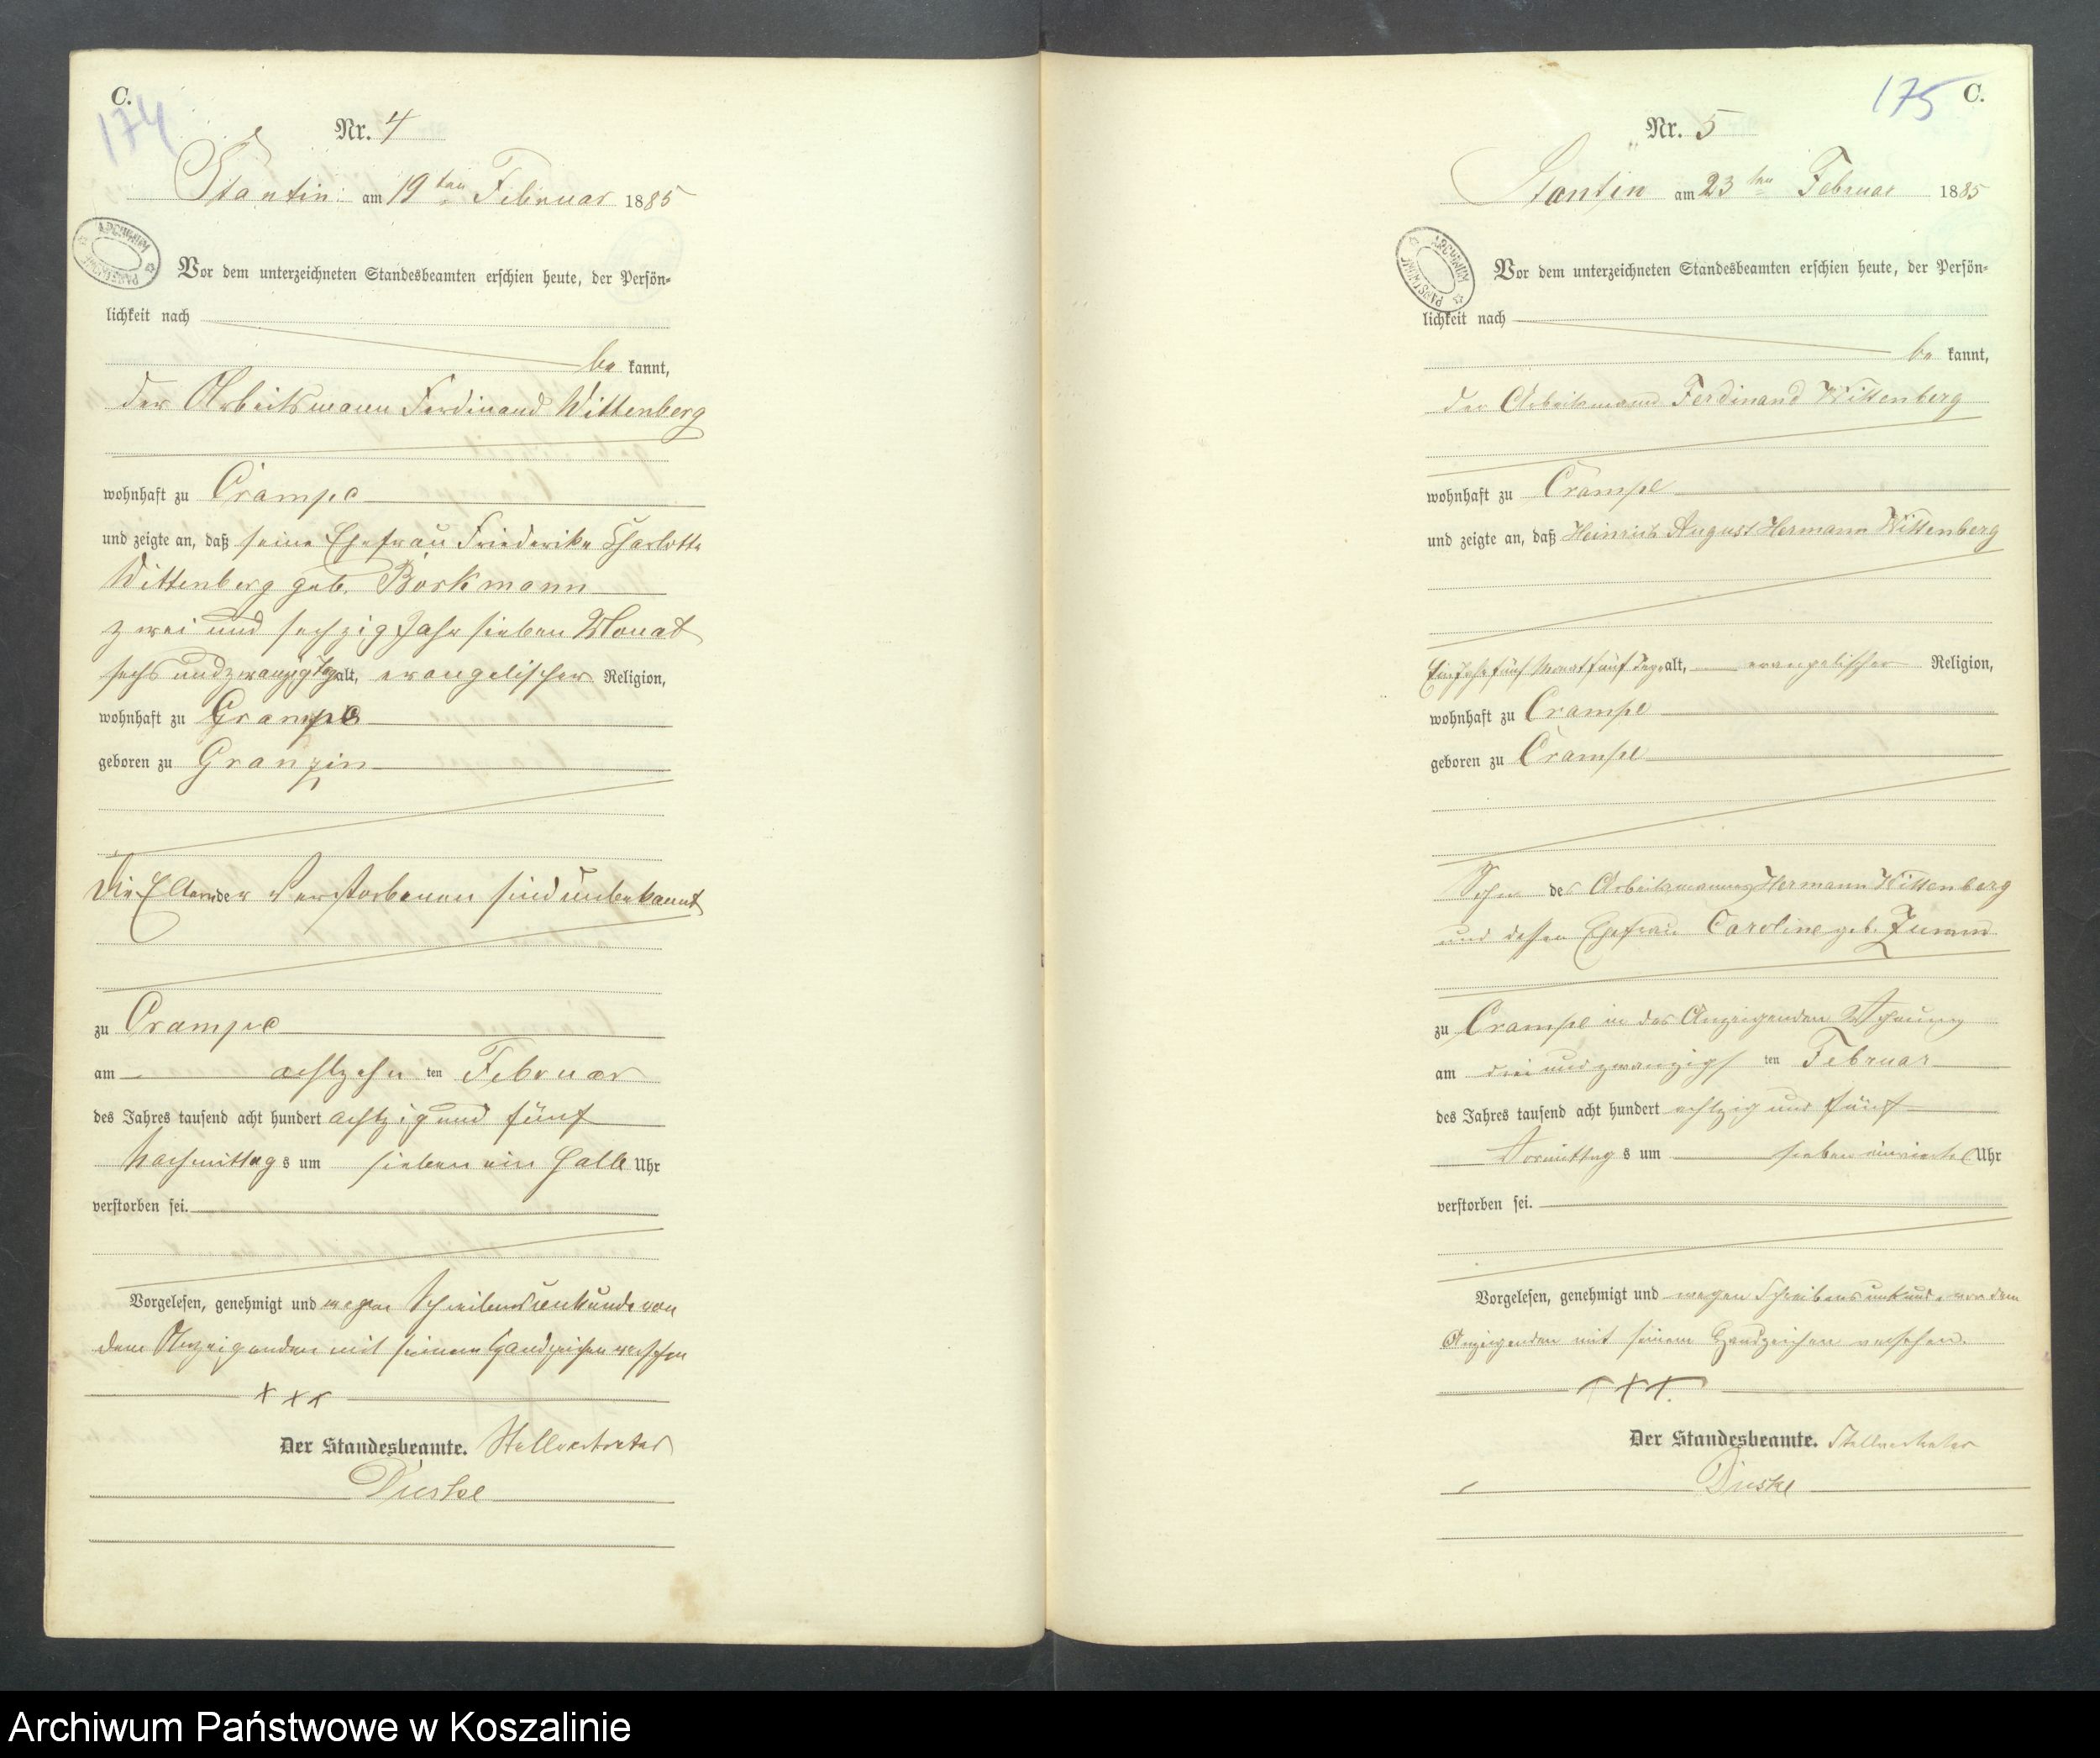 C.
174
Nr. 4
Stantin am 19ten Februar 1885
ARCHIWUM PAŃSTWOWE
Vor dem unterzeichneten Standesbeamten erschien heute, der Persön-
lichkeit nach
be kannt,
der Arbeitsmann Ferdinand Wittenberg
wohnhaft zu Crampe
und zeigte an, daß seine Ehefrau Friederike Charlotte
Wittenberg geb. Borkmann
zwei und sechzig Jahr sieben Monat
sechs und zwanzig Tage alt, evangelischer Religion,
wohnhaft zu Crampe
geboren zu Granzin
Die Eltern der Verstorbenen sind unbekannt
zu Crampe
am achtzehn ten Februar
des Jahres tausend acht hundert achtzig und fünf
Nachmittags um sieben ein halb Uhr
verstorben sei.
Vorgelesen, genehmigt und wegen Schreibensunkunde von
dem Anzeigenden mit seinem Handzeichen versehen
+++
Der Standesbeamte. Stellvertreter
175 C.
Nr. 5
Stantin am 23ten Februar 1885
ARCHIWUM PAŃSTWOWE
Vor dem unterzeichneten Standesbeamten erschien heute, der Persön-
lichkeit nach
be kannt,
der Arbeitsmann Ferdinand Wittenberg
wohnhaft zu Crampe
und zeigte an, daß Heinrich August Hermann Wittenberg
Ein Jahr fünf Monat fünf Tage alt, evangelischer Religion,
wohnhaft zu Crampe
geboren zu Crampe
Sohn des Arbeitsmannes Hermann Wittenberg
und dessen Ehefrau Caroline geb.
zu Crampe in des Anzeigenden Wohnung
am drei und zwanzigs ten Februar
des Jahres tausend acht hundert achtzig und fünf
Vormittags um sieben ein viertel Uhr
verstorben sei.
Vorgelesen, genehmigt und wegen Schreibensunkunde von dem
Anzeigenden mit seinem Handzeichen versehen.
+++
Der Standesbeamte. Stellvertreter
Archiwum Państwowe w Koszalinie